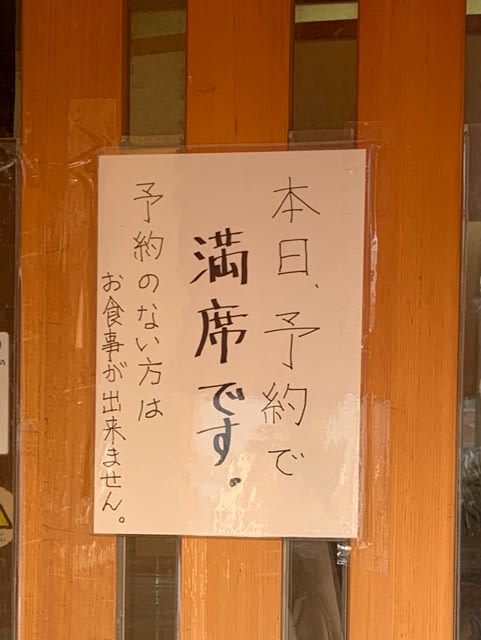 本日、予約で
満席です。
予約のない方は
お食事が出来ません。